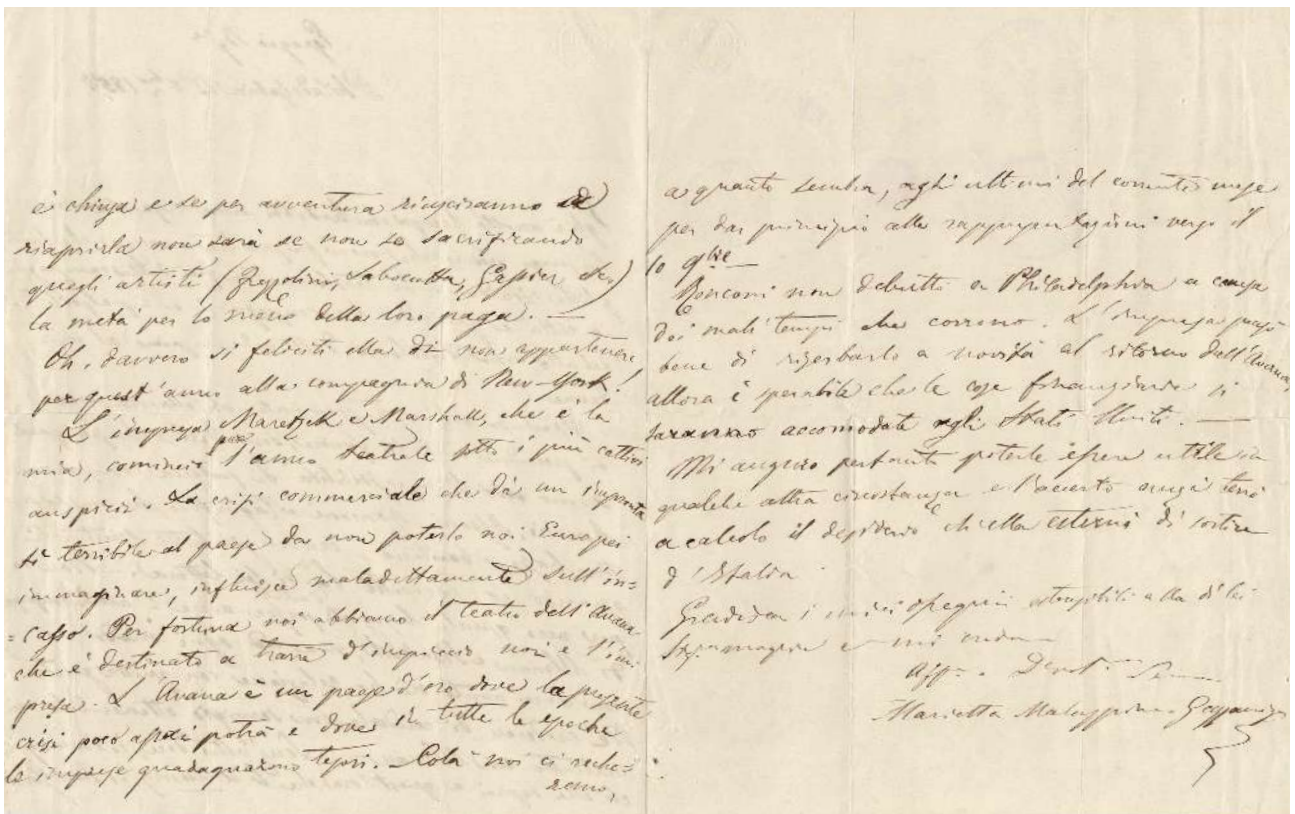 è chiusa e se per avventura riusciranno a
riaprirla non sarà se non se sacrificando
quegli artisti (Frezzolini, Labocetta, Gassier etc)
la metà per lo meno della loro paga. —
Oh, davvero si feliciti ella di non appartenere
per quest'anno alla compagnia di New-York!
L'impresa Maretzek e Marshall, che è la
mia, cominciò pure l'anno teatrale sotto i più cattivi
auspicii. La crisi commerciale che dà un impronta
sì terribile al paese da non poterlo noi Europei
immaginare, influisce maladettamente sull'in=
=casso. Per fortuna noi abbiamo il teatro dell'Avana
che è destinato a trarre d'impiccio noi e l'im
presa. L'Avana è un paese d'oro dove la presente
crisi poco assai potrà e dove in tutte le epoche
le imprese guadagnarono tesori. Colà noi ci reche=
remo,
a quanto sembra, agli ultimi del corrente mese
per dar principio alle rappresentazioni verso il
10 
Ronconi non debuttò a Philadelphia a causa
dei mali tempi che corrono. L'impresa pensò
bene di riserbarlo a novità al ritorno dell'Avana,
allora è sperabile che le cose finanziarie si
saranno accomodate agli Stati Uniti. —
Mi auguro pertanto poterle essere utile in
qualche altra circostanza e l'accerto anzi terrò
a calcolo il desiderio ch'ella esterna di sortire
d'Italia.
Gradisca i miei ossequii estensibili alla di lei
Sig.ra moglie e mi creda
Aff.ma Devot.ma
Marietta Malaspina Gazzaniga